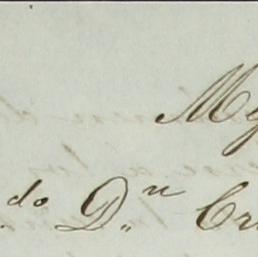 My
.do Dn Cr